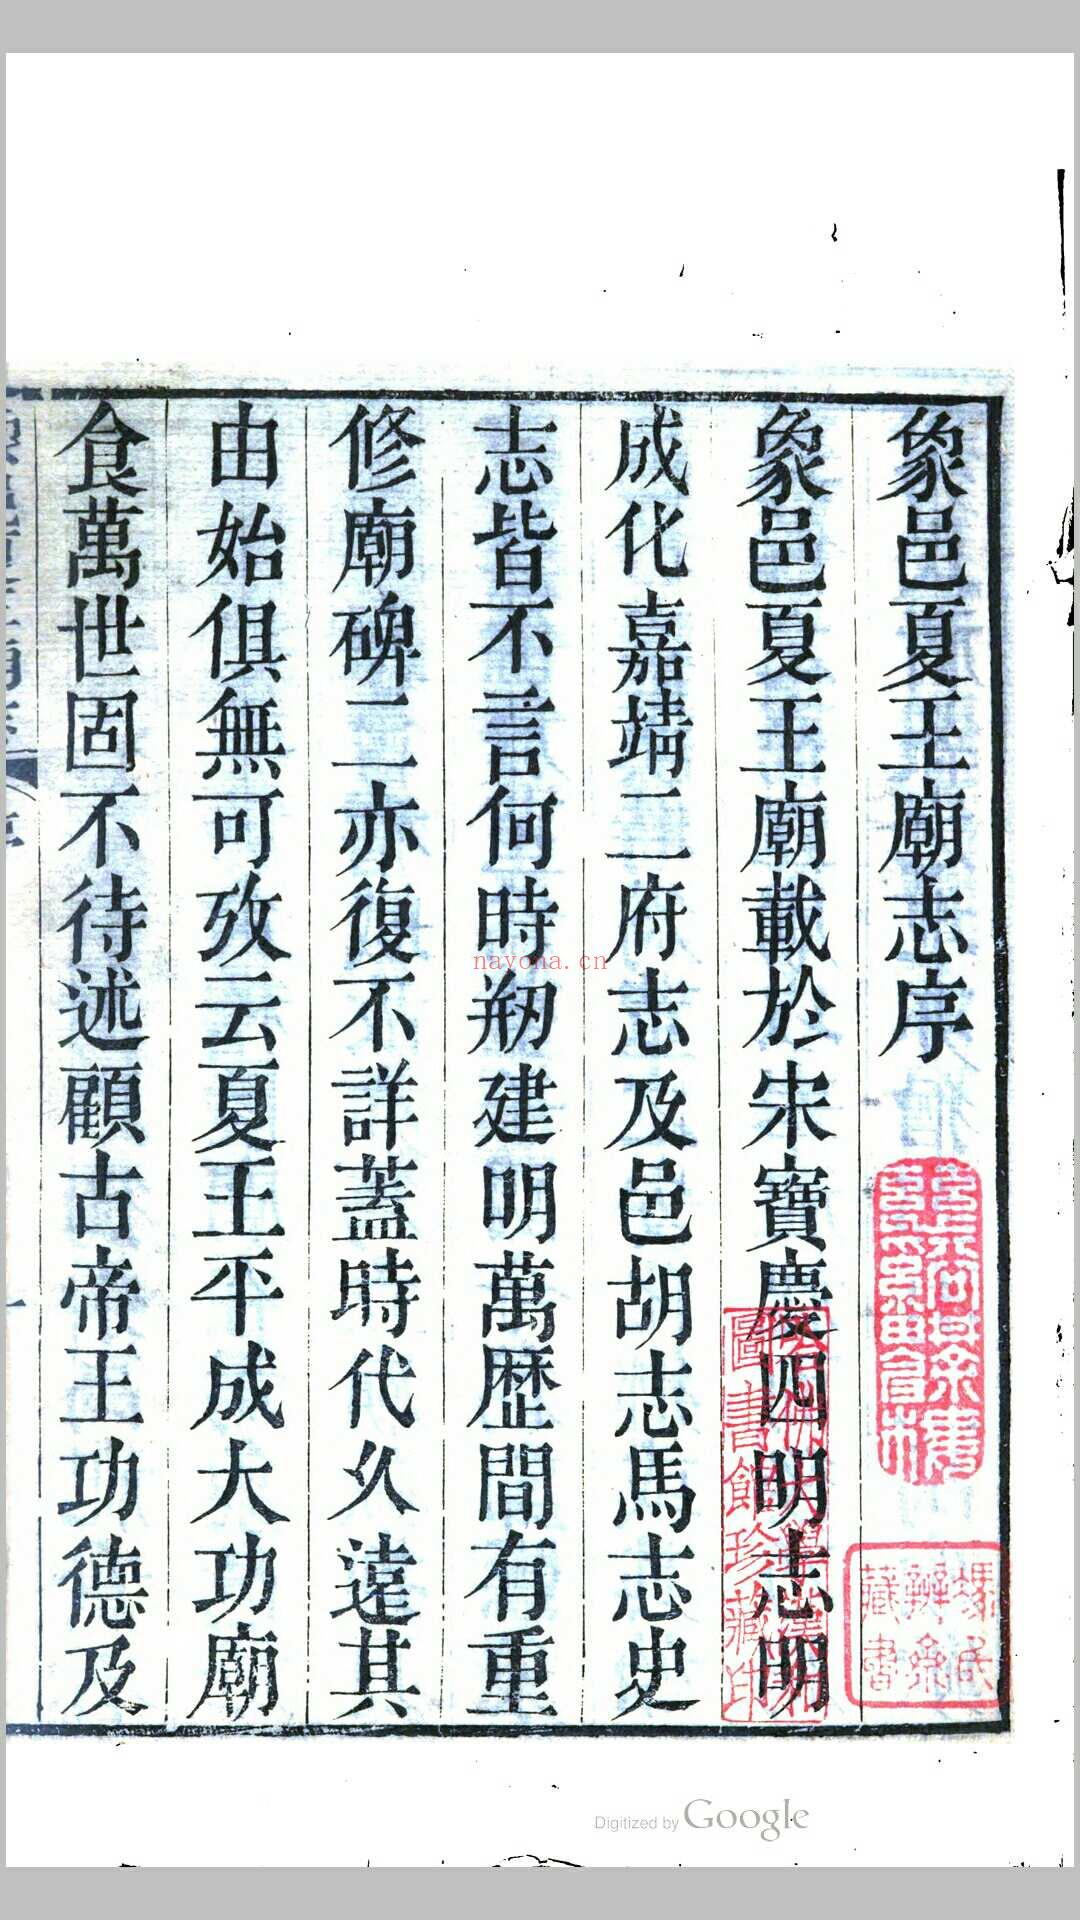 象邑夏王廟志序
象邑夏王廟載於宋寶慶四明志明
成化嘉靖二府志及邑胡志馬志史
志皆不言何時剏建明萬歷間有重
修廟碑二亦復不詳蓋時代久遠其
由始俱無可攷云夏王平成大功廟
食萬世固不待述顧古帝王功德及
圖書館珍藏印
藏書
nayona.cn
Digitized by Google